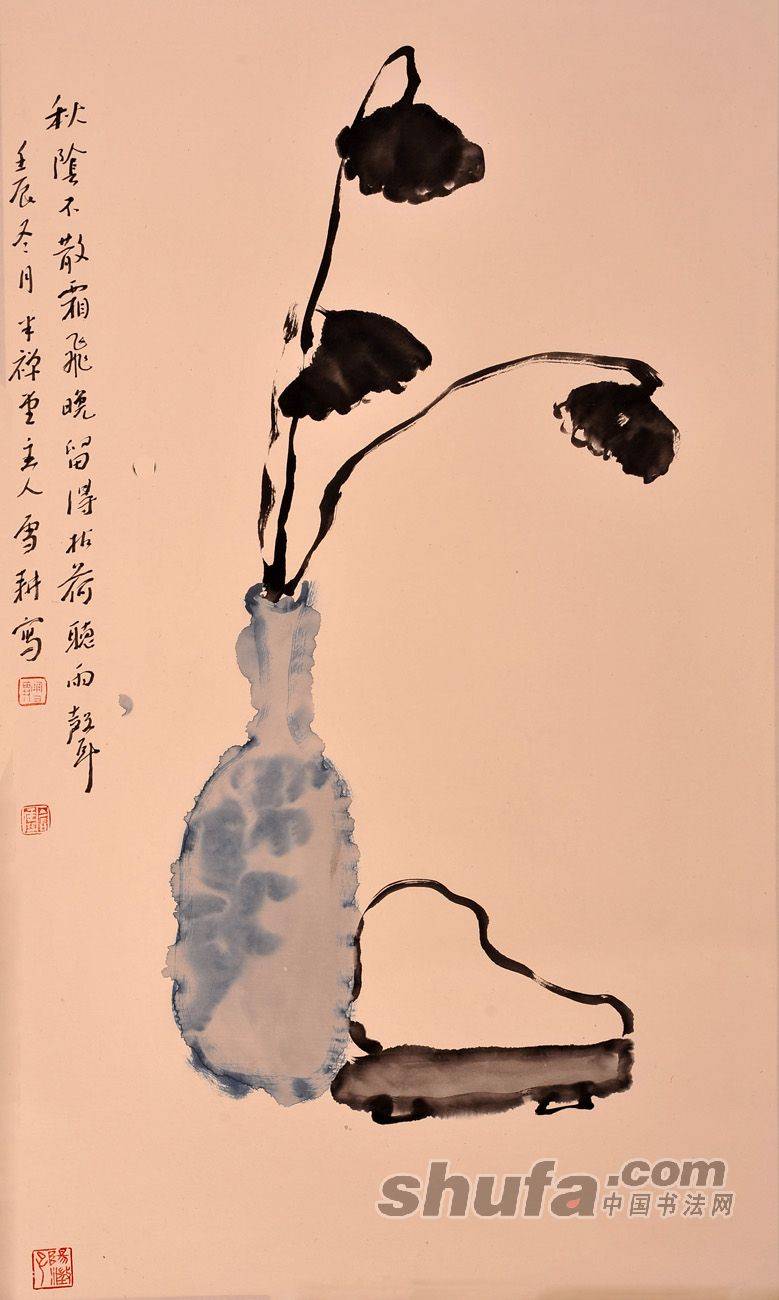 秋陰不散霜飛晚留得枯荷聽雨聲
壬辰冬月半禪堂主人雪耕寫
shufa.com
中国书法网